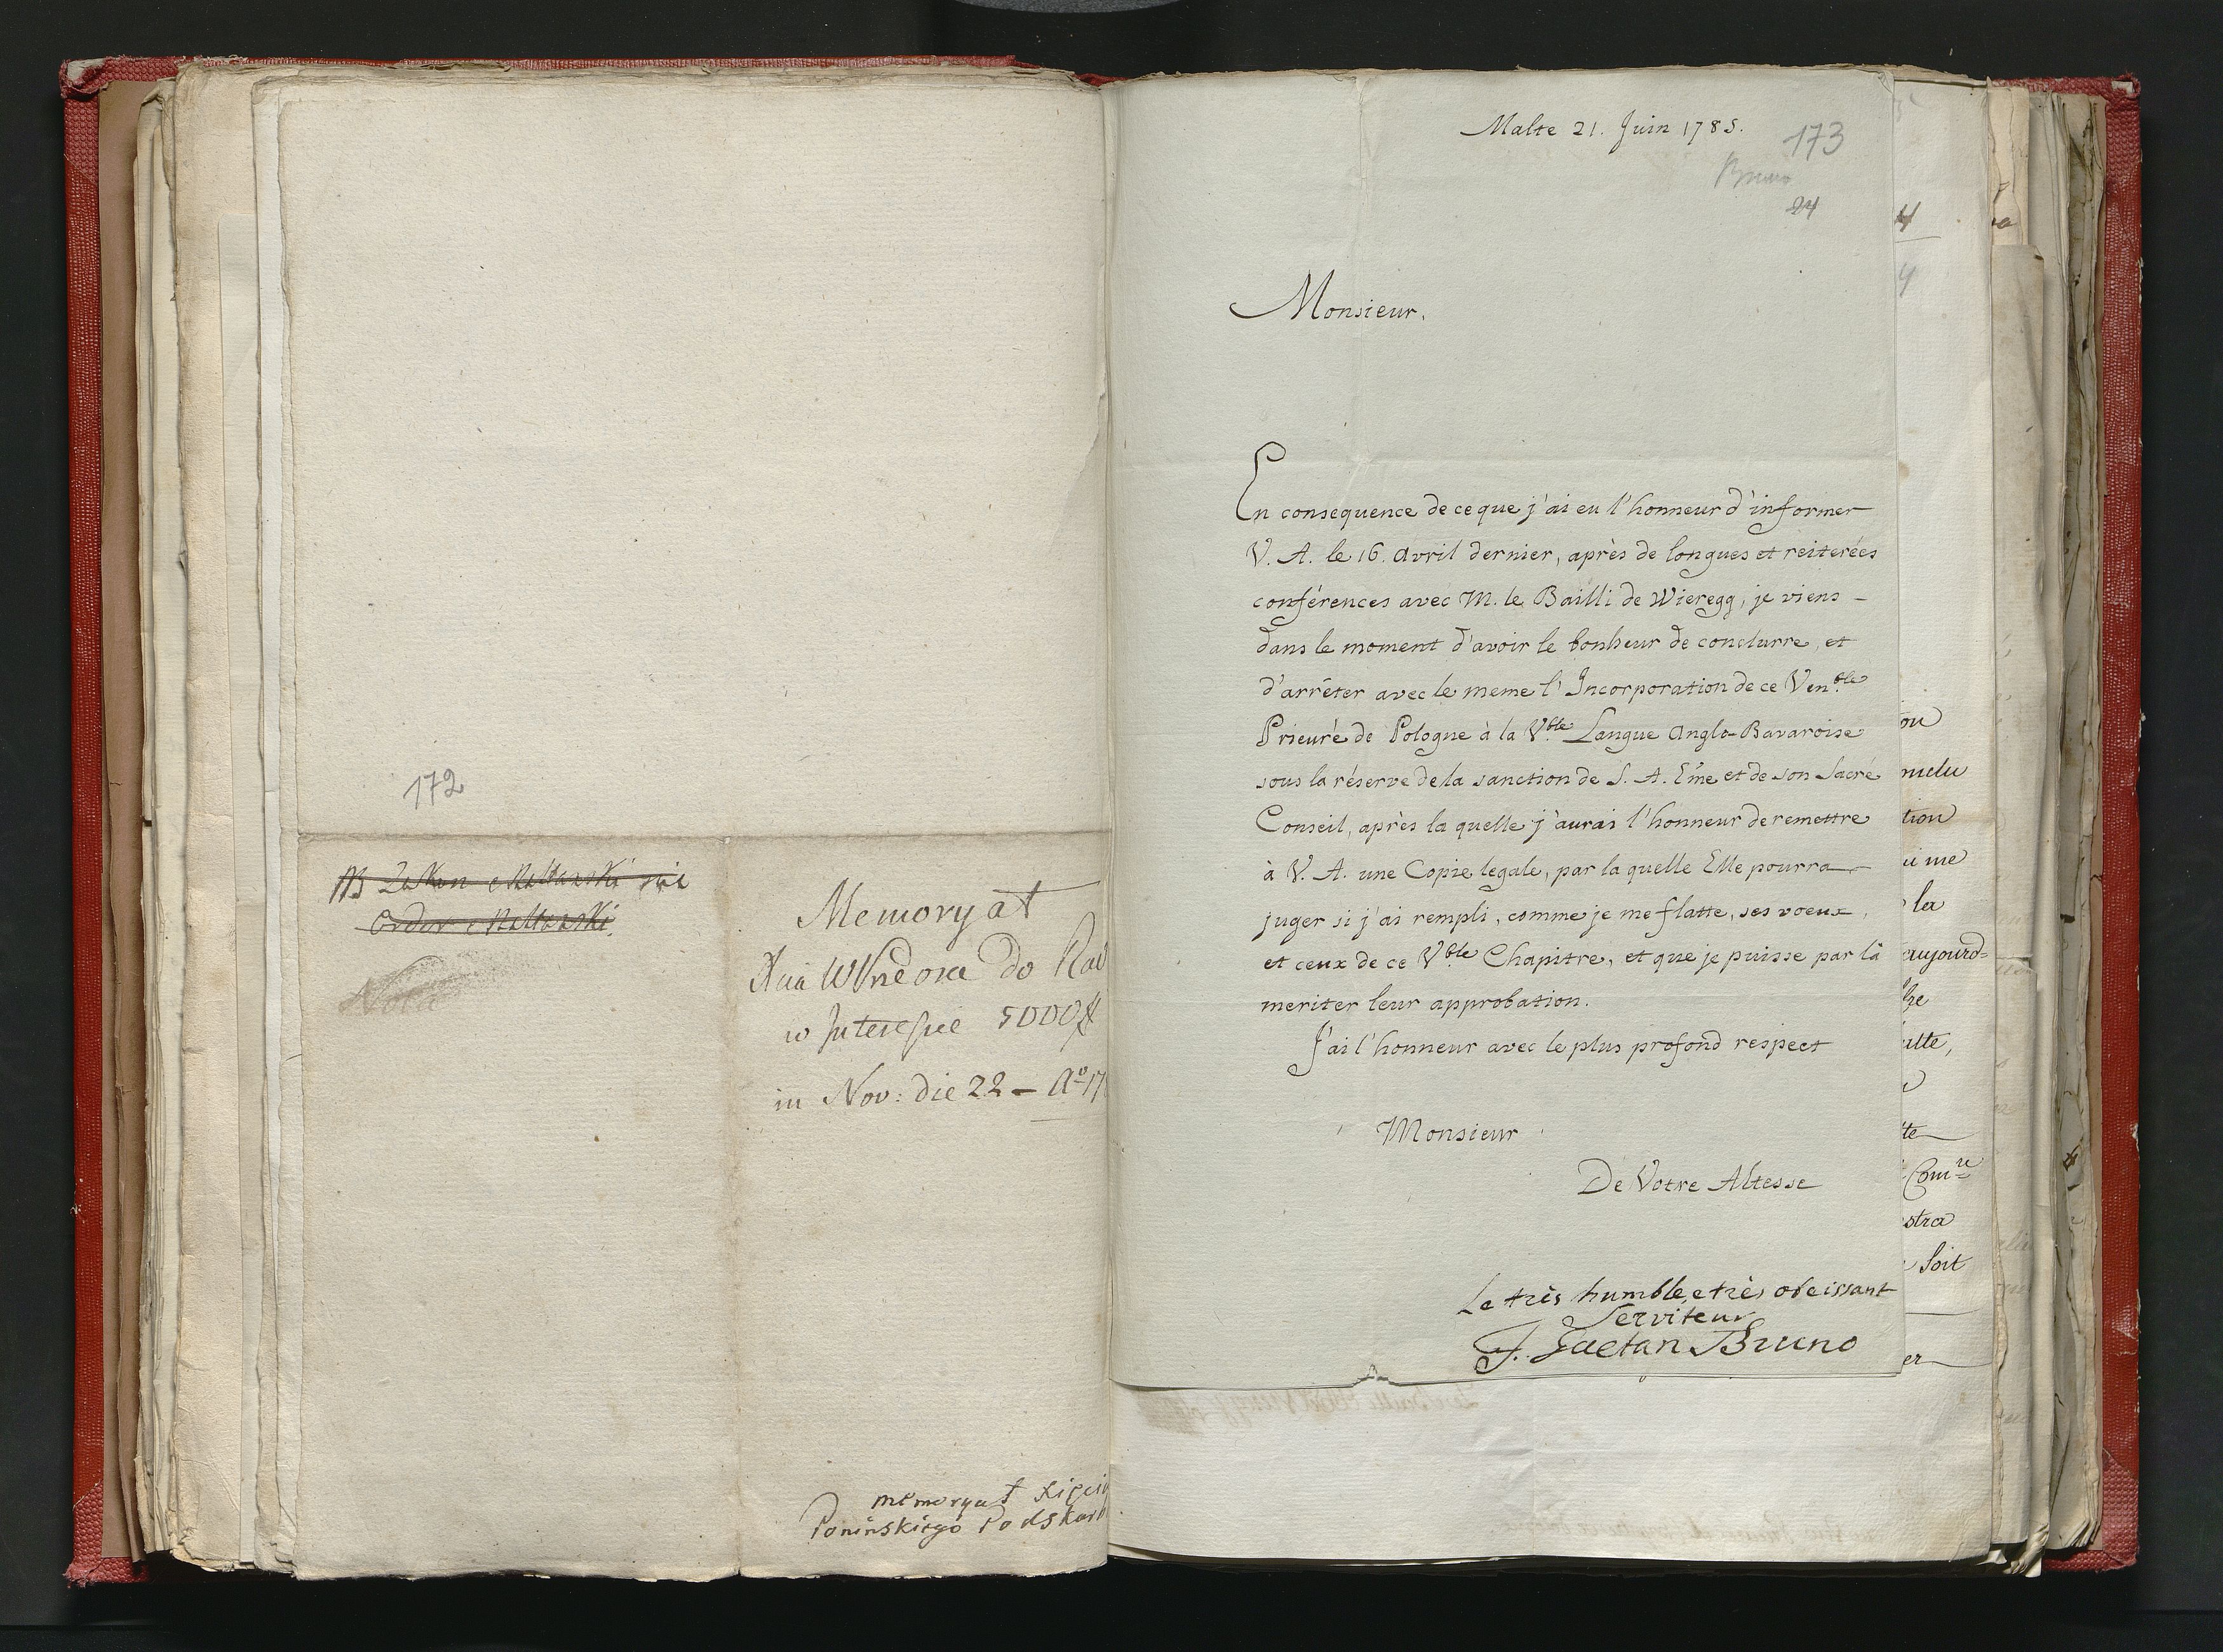 172
Zakon Maltanski
Order Maltanski
Nota
Memoryat
w Interesie 5000
in Nov: die 22 - Aº 17
memoryat Xięci
Poninskiego Podskar
Malte 21. Juin 1785.
173
Bruno
24
Monsieur.
En consequence de ce que j'ai eu l'honneur d'informer
V. A. le 16. Avril dernier, après de longues et reiterées
conférences avec M. le Bailli de Wieregg, je viens -
dans le moment d'avoir le bonheur de conclurre, et
d'arrêter avec le meme l'Incorporation de ce Ven.ble
Prieuré de Pologne à la V.ble Langue Anglo-Bavaroise
sous la réserve de la sanction de S. A. Eme et de son Sacré
Conseil, après la quelle j'aurai l'honneur de remettre
à V. A. une Copie legale, par la quelle Elle pourra
juger si j'ai rempli, comme je me flatte, ses voeux,
et ceux de ce V.ble Chapitre, et que je puisse par là
meriter leur approbation.
J'ai l'honneur avec le plus profond respect
Monsieur
De Votre Altesse
Le très humble, e très obeissant
Serviteur
F. Gaetan Bruno
4
4
ou
tion
ui me
la
aujourd=
tte
Com.re
stra
soit
er